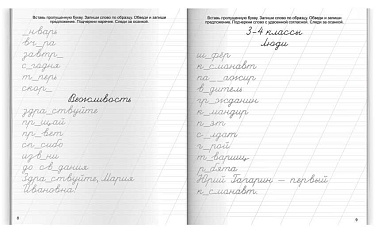 Вставь пропущенную букву. Запиши слово по образцу. Обведи и запиши
предложение. Подчеркни наречия. Следи за осанкой.
_нварь
вч_ра
завтр_
с_годня
т_перь
скор_
Вежливость
здра_ствуйте
пр_щай
пр_вет
сп_сибо
изв_ни
до св_дания
Здра_ствуйте, Мария
Ивановна!
8
Вставь пропущенную букву. Запиши слово по образцу. Обведи и запиши
предложение. Подчеркни слово с удвоенной согласной. Следи за осанкой.
3-4 классы
Люди
ш_фёр
к_смонавт
па_ажир
в_дитель
гр_жданин
к_мандир
п_эт
с_лдат
г_рой
т_варищ
р_бята
Юрий Гагарин — первый
к_смонавт.
9